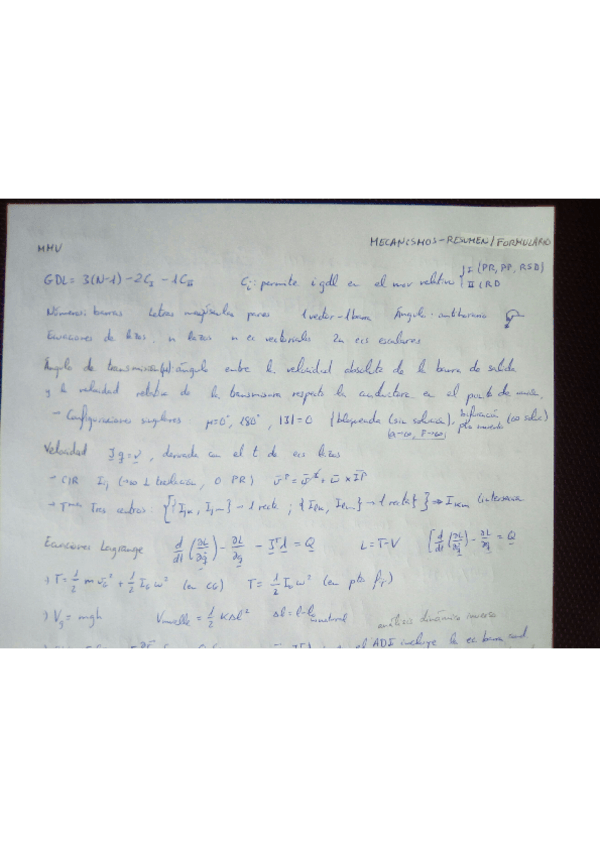 MECANISMOS-RESUMEN/FORMULARIO
MMU
GDL = 3(N-1) - 2C_I - 1C_II    C_i: permite i gdl en el mov relativo { I (PR, PP, RSD) II (RD
Números: barras    Letras mayúsculas pares    1 vector - 1 barra    Ángulo - antihorario
Ecuaciones de lazos. n lazos n ec vectoriales 2n ecs escalares
Ángulo de transmisión (μ): ángulo entre la velocidad absoluta de la barra de salida
y la velocidad relativa de la transmisora respecto la conductora en el punto de
- Configuraciones singulares    μ=0°, 180°, |J|=0    { bloqueada (sin solución), bifurcación (∞ soluc) pto muerto
Velocidad    J q̇ = v, derivada en el t de ecs lazos
- CIR    I_ij (→∞ ⊥ traslación, O PR)
- T^ma Tres centros: → 1 recta ; → 1 recta } ⇒ I_km
Ecuaciones Lagrange    d/dt (∂L/∂q̇) - ∂L/∂q - J^T λ = Q    L = T-V    [ d/dt (∂L/∂q̇) - ∂L/∂q = Q
→ T = 1/2 m v_G² + 1/2 I_G ω² (en CG)    T = 1/2 I_o ω² (en pto
→ V_g = mgh    V_muelle = 1/2 K Δl²    Δl = l - l_natural    análisis dinámico inverso
el ADI incluye la ec barra